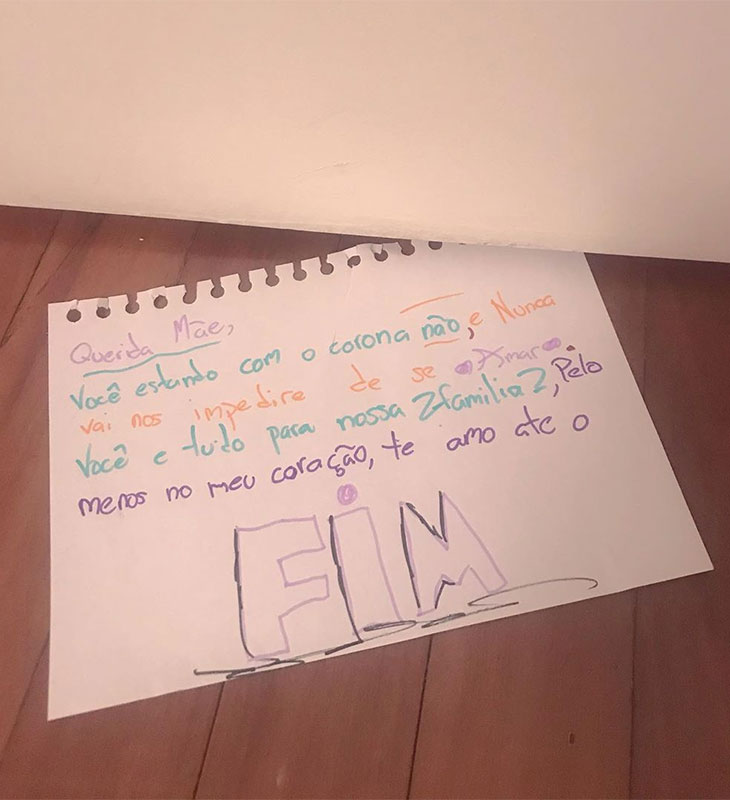 Querida Mãe,
Você estando com o corona não, e Nunca
vai nos impedire de se Amar.
Você e tudo para nossa família, Pelo
menos no meu coração, te amo ate o
FIM